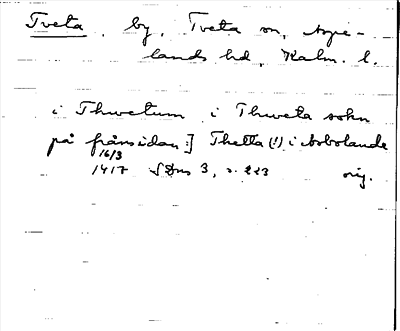 Tveta, by, Tveta sn, Aspe-
lands hd, Kalm. l.
i Thwetum i Thweta sokn
på frånsidan:] Thetta (!) i Asbolande
16/3
1417 SDns 3, s. 223 orig.